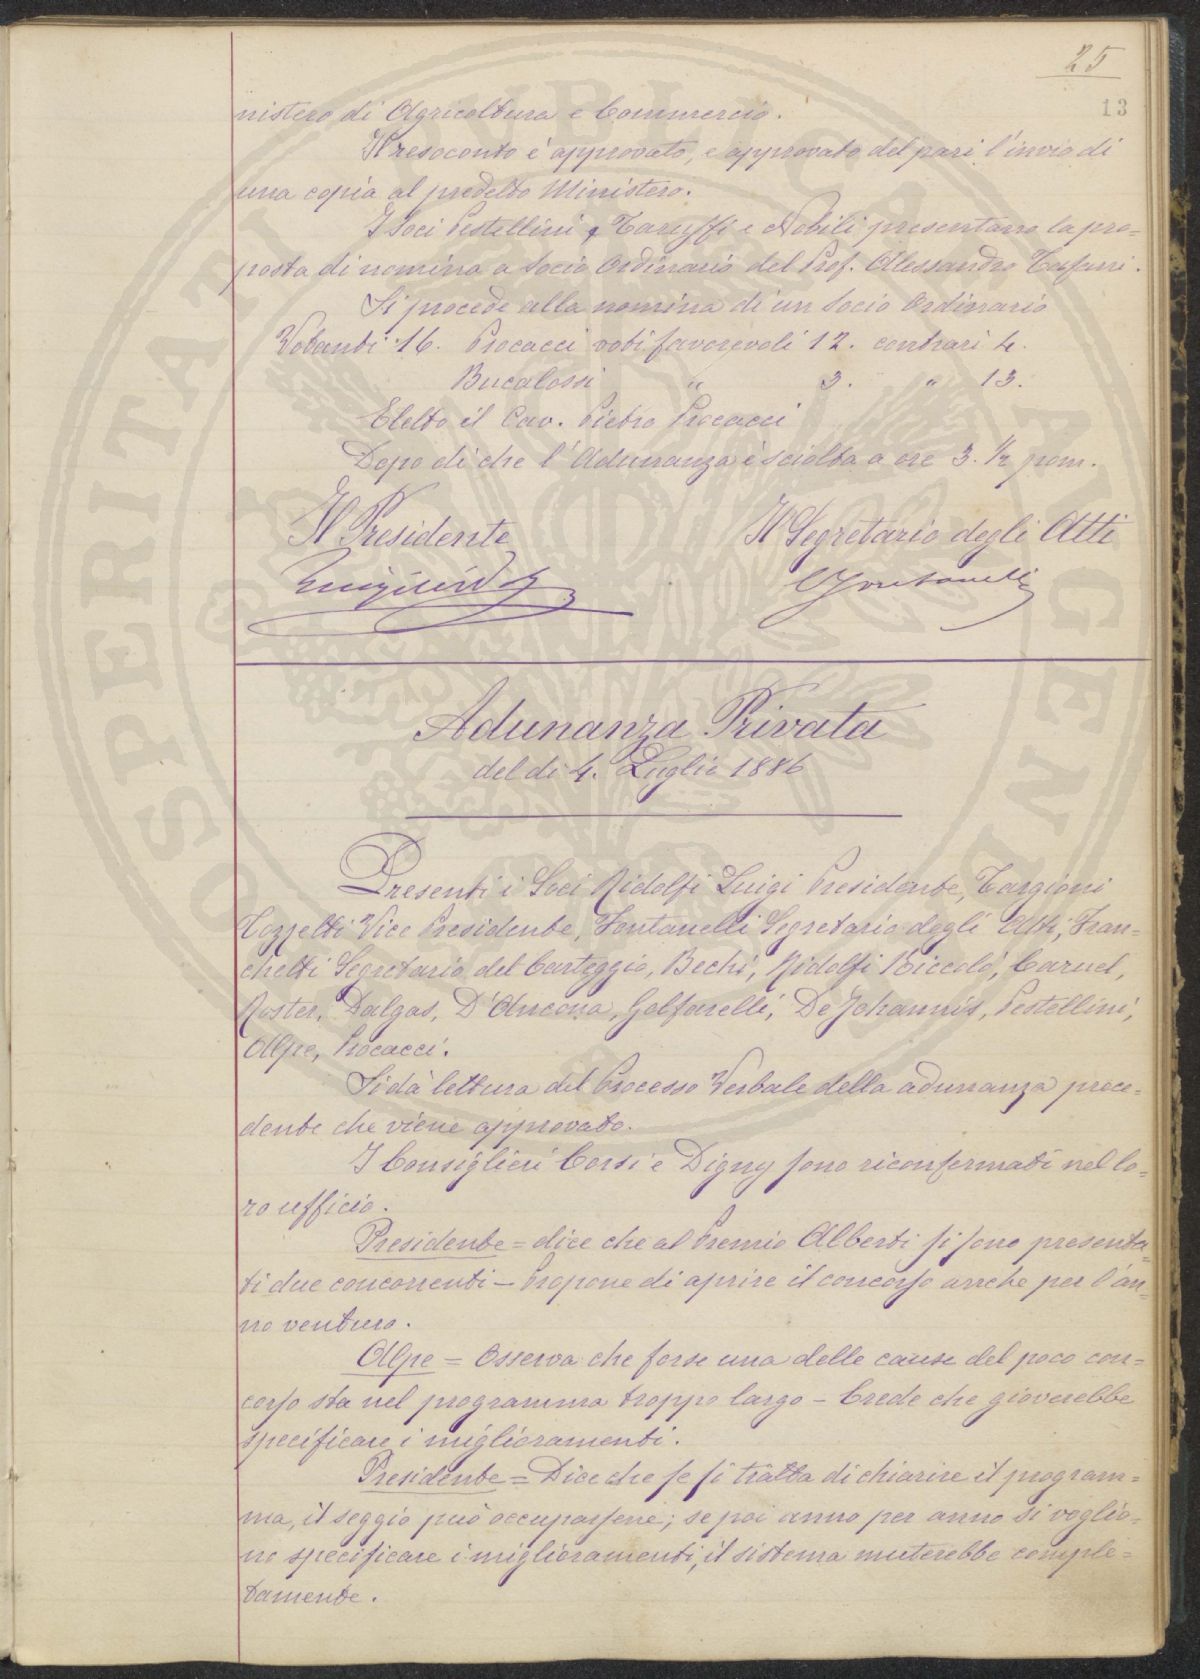 25
13
nistero di Agricoltura e Commercio.
Il resoconto è approvato, e approvato del pari l'invio di
una copia al predetto Ministero.
I Soci Pestellini, Taruffi e Nobili presentano la pro=
posta di nomina a Socio Ordinario del Prof. Alessandro Tafani.
Si procede alla nomina di un Socio Ordinario
Votanti 16. Procacci voti favorevoli 12. contrari 4.
Bucalossi " 3. " 13.
Eletto il Cav. Pietro Procacci
Dopo di che l'Adunanza è sciolta a ore 3. ½ pom.
Il Presidente Il Segretario degli Atti
Luigi Ridolfi C Fontanelli
Adunanza Privata
del dì 4. Luglio 1886
Presenti i Soci Ridolfi Luigi Presidente, Targioni
Tozzetti Vice Presidente, Fontanelli Segretario degli Atti, Fran=
chetti Segretario del Carteggio, Bechi, Ridolfi Niccolò, Caruel,
Roster, Dalgas, D'Ancona, Golfarelli, De Johannis, Pestellini,
Alpe, Procacci.
Si dà lettura del Processo Verbale della adunanza prece=
dente che viene approvato.
I Consiglieri Corsi e Digny sono riconfermati nel lo=
ro ufficio.
Presidente = dice che al Premio Alberti si sono presenta=
ti due concorrenti - Propone di aprire il concorso anche per l'an=
no venturo.
Alpe = Osserva che forse una delle cause del poco con=
corso sta nel programma troppo largo - Crede che gioverebbe
specificare i miglioramenti.
Presidente = Dice che se si tratta di chiarire il program=
ma, il seggio può occuparsene; se poi anno per anno si voglio=
no specificare i miglioramenti, il sistema muterebbe comple=
tamente.
SPERITATI PVBLICAE AVGENDAE